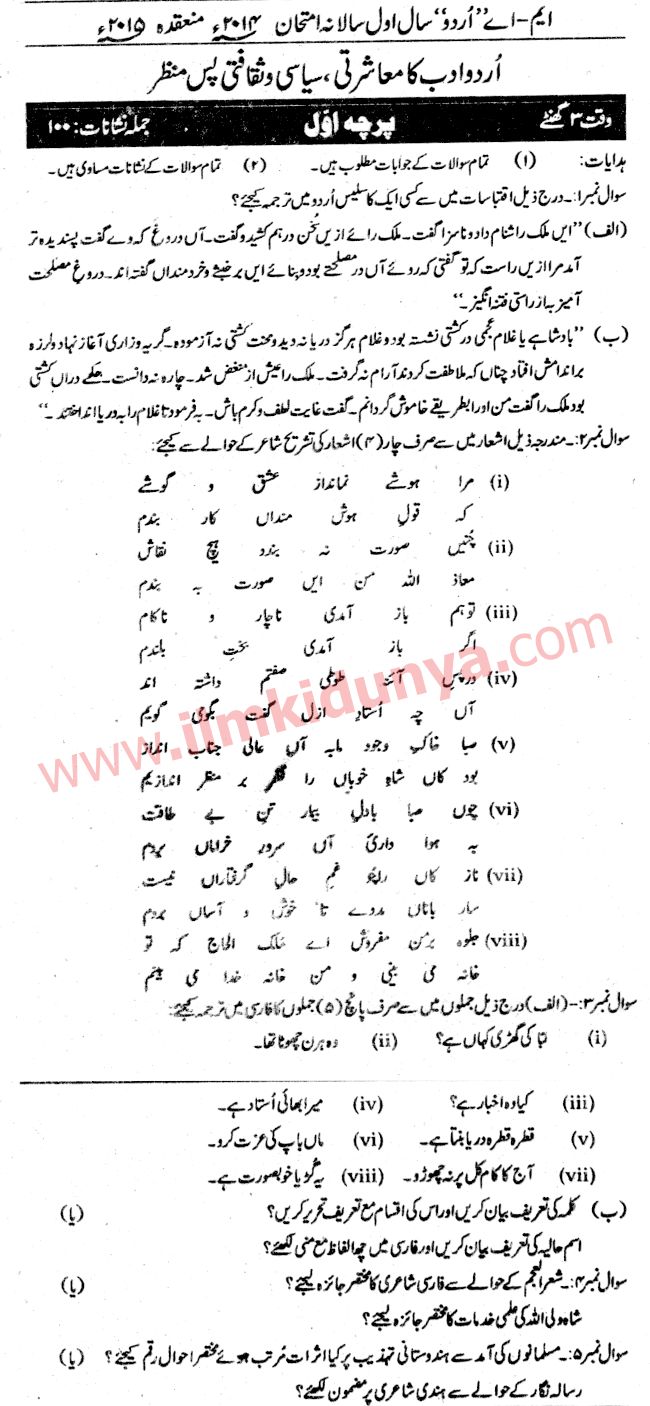 ایم-اے "اُردو" سال اول سالانہ امتحان ۲۰۱۴ء منعقدہ ۲۰۱۵ء
اُردو ادب کا معاشرتی، سیاسی و ثقافتی پس منظر
وقت ۳ گھنٹے پرچہ اوّل جملہ نشانات: ۱۰۰
ہدایات: (۱) تمام سوالات کے جوابات مطلوب ہیں۔ (۲) تمام سوالات کے نشانات مساوی ہیں۔
سوال نمبر۱:۔ درج ذیل اقتباسات میں سے کسی ایک کا سلیس اُردو میں ترجمہ کیجئے؟
(الف) "ایں ملک را شنام داد و ناسزا گفت۔ ملک رائے ازیں سُخن درہم کشید و گفت۔ آں دروغ کہ وے گفت پسندیدہ تر
آمد مرا ازیں راست کہ تو گفتی کہ روئے آں در مصلحتے بود و بنائے ایں بر خبثے و خردمنداں گفتہ اند۔ دروغِ مصلحت
آمیز بہ از راستی فتنہ انگیز۔"
(ب) "بادشاہے با غلامِ عجمی در کشتی نشستہ بود و غلام ہرگز دریا نہ دید و محنت کشتی نہ آزمودہ۔ گریہ و زاری آغاز نہاد و لرزہ
بر اندامش افتاد چناں کہ ملاطفت کردند آرام نہ گرفت۔ ملک را عیش از منغض شد۔ چارہ نہ دانست۔ حکمے دراں کشتی
بود ملک را گفت من او را بطریقے خاموش گردانم۔ گفت غایت لطف و کرم باش۔ بہ فرمود تا غلام را بہ دریا انداختند۔"
سوال نمبر۲:۔ مندرجہ ذیل اشعار میں سے صرف چار (۴) اشعار کی تشریح شاعر کے حوالے سے کیجئے:
(i) مرا ہوشے نماند از عشق و گوشے
کہ قولِ ہوش منداں کار بندم
(ii) چُنیں صورت نہ بندد ہیچ نقاش
معاذ اللہ من ایں صورت بہ بندم
(iii) تو ہم باز آمدی ناچار و ناکام
اگر باز آمدی بختِ بلندم
(iv) در پسِ آئنہ طوطی صفتم داشتہ اند
آں چہ اُستادِ ازل گفت بگوی گویم
(v) صبا خاکِ وجود مابہ آں عالی جناب انداز
بود کاں شاہِ خوباں را نظر بر منظر اندازیم
(vi) چوں صبا بادلِ بیمار تنِ بے طاقت
بہ ہوا داریٔ آں سرورِ خراماں بروم
(vii) ناز کاں را غمِ حالِ گرفتاراں نیست
سار باناں مددے تا خوش و آساں بروم
(viii) جلوہ برمن مفروش اے ملک الحاج کہ تو
خانہ می بینی و من خانہ خدا می بینم
سوال نمبر۳:۔ (الف) درج ذیل جملوں میں سے صرف پانچ (۵) جملوں کا فارسی میں ترجمہ کیجئے:
(i) ابّا کی گھڑی کہاں ہے؟ (ii) وہ ہرن چھوٹا تھا۔
(iii) کیا وہ اخبار ہے؟ (iv) میرا بھائی اُستاد ہے۔
(v) قطرہ قطرہ دریا بنتا ہے۔ (vi) ماں باپ کی عزت کرو۔
(vii) آج کا کام کل پر نہ چھوڑو۔ (viii) یہ گڑیا خوبصورت ہے۔
(ب) کلمہ کی تعریف بیان کریں اور اس کی اقسام مع تعریف تحریر کریں؟ (یا)
اسم حالیہ کی تعریف بیان کریں اور فارسی میں چھ الفاظ مع منی لکھئے؟
سوال نمبر۴:۔ شعر العجم کے حوالے سے فارسی شاعری کا مختصر جائزہ لیجئے؟ (یا)
شاہ ولی اللہ کی علمی خدمات کا مختصر جائزہ لیجئے؟
سوال نمبر۵:۔ مسلمانوں کی آمد سے ہندوستانی تہذیب پر کیا اثرات مُرتب ہوئے مختصر احوال رقم کیجئے؟ (یا)
رسالہ نگار کے حوالے سے ہندی شاعری پر مضمون لکھئے؟
www.ilmkidunya.com